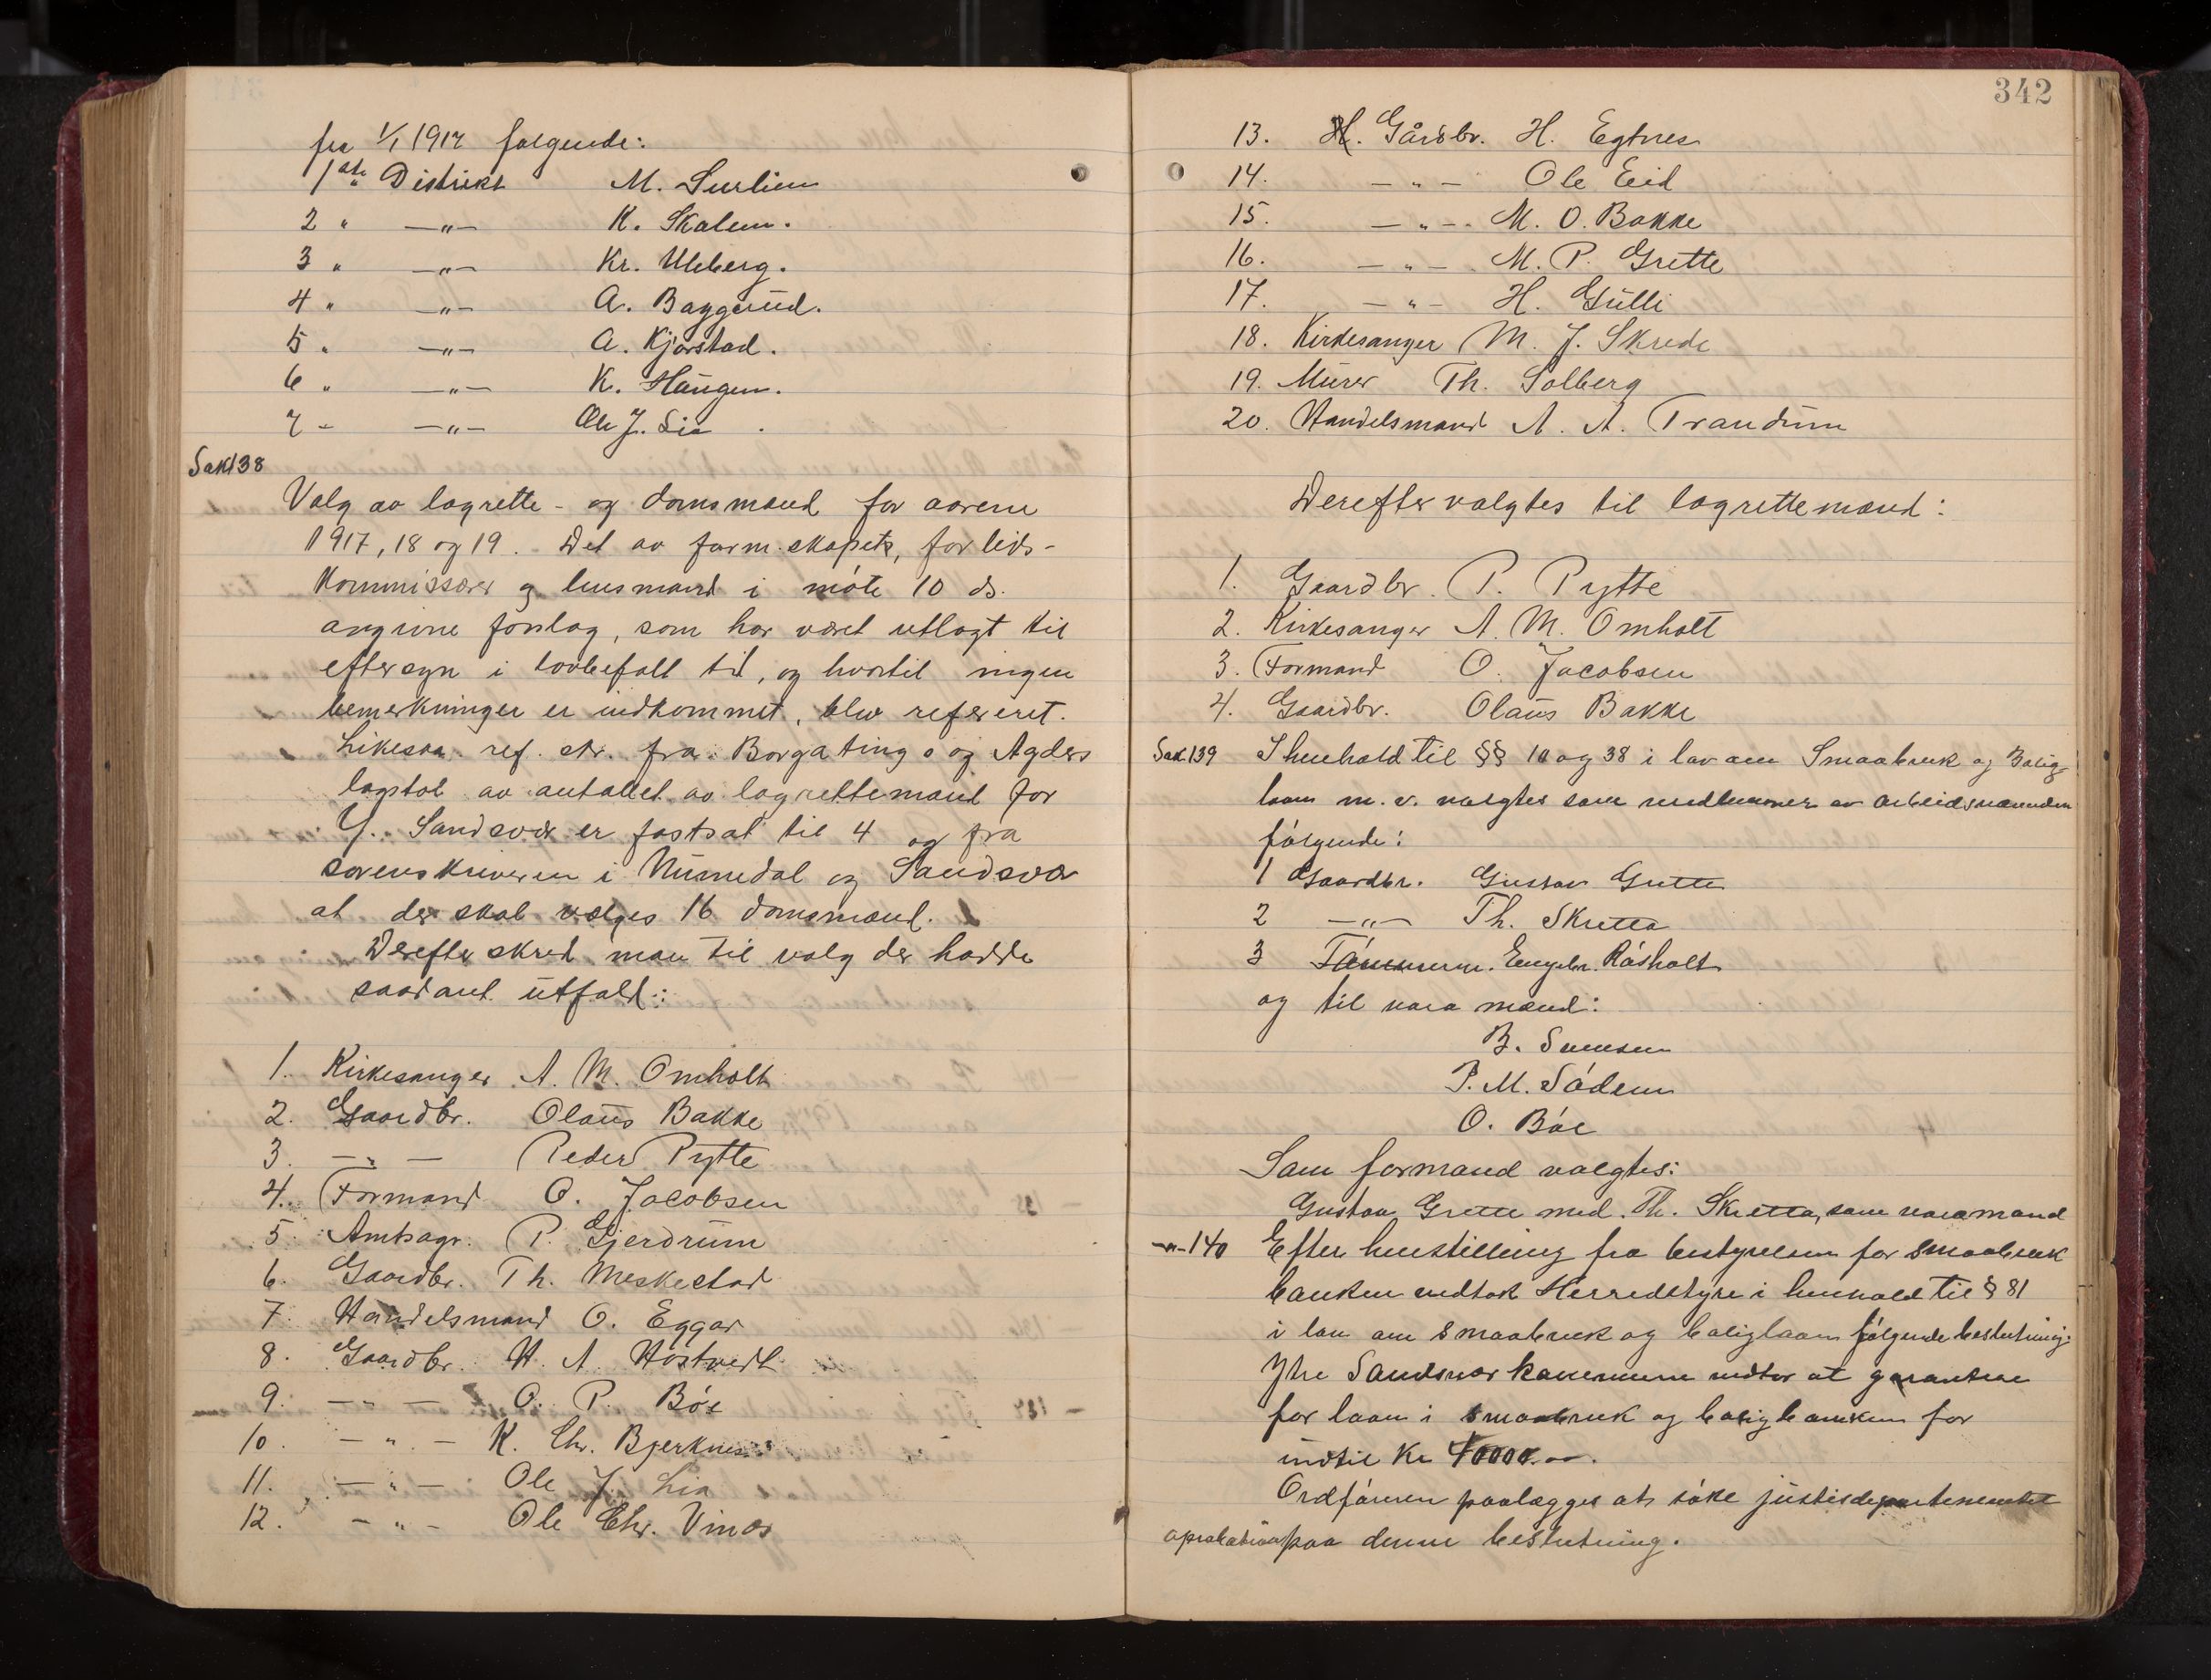 fra 1/1 1917 følgende:
1ste Distrikt M. Surlien
2 " —"— K. Skalem.
3 " —"— Kr. Ulleberg.
4 " —"— A. Baggerud.
5 " —"— A. Kjørstad.
6 " —"— K. Haugen.
7 " —"— Ole J. Lia
Sak 138
Valg av lagrette- og domsmænd for aarene
1917, 18 og 19. Det av formskapet, forliks-
kommissærer og lensmand i møte 10 ds.
angivne forslag, som har været utlagt til
eftersyn i lovbefalt tid, og hvortil ingen
bemerkninger er indkommet, blev referert.
Likesaa ref. skr. fra Borgatings og Agders
lagstol av antallet av lagrettemænd for
Y. Sandsvær er fastsat til 4 og fra
sorenskriveren i Numedal og Sandsvær
at der skal vælges 16 domsmænd.
Derefter skred man til valg der hadde
saadant utfald:
1. Kirkesanger A. M. Omholt
2. Gaardbr. Olaus Bakke
3. —"— Peder Pytte
4. Formand O. Jacobsen
5. Amtsagr. P. Gjerdrum
6. Gaardbr. Th. Meskestad
7. Handelsmand O. Eggar
8. Gaardbr. H. A. Hostvedt
9. —"— O. P. Bøe
10. —"— K. Chr. Bjerknes
11. —"— Ole J. Lia
12. —"— Ole Chr. Vinæs
342
13. H. Gårdbr. H. Egtnes
14. —"— Ole Eid
15. —"— M. O. Bakke
16. —"— M. P. Grette
17. —"— H. Gulli
18. Kirkesanger M. J. Skrede
19. Murer Th. Solberg
20. Handelsmand A. A. Trandum
Derefter valgtes til lagrettemænd:
1. Gaardbr. P. Pytte
2. Kirkesanger A. M. Omholt
3. Formand O. Jacobsen
4. Gaardbr. Olaus Bakke
Sak 139 I henhold til §§ 10 og 38 i lov om Smaabruk og Bolig-
laan m. v. valgtes som medlemmer av arbeidsnemnden
følgende:
1 Gaardbr. Gustav Grette
2 —"— Th. Skretta
3 Tömmerm. Engebr. Råsholt
og til vara mænd:
B. Svensen
P. M. Sødem
O. Bøe
Som formand valgtes:
Gustav Grette med Th. Skretta, som varamand
—"— 140 Efter henstilling fra bestyrelsen for smaabruk
banken vedtok Herredstyre i henhold til § 81
i lov om smaabruk og boliglaan følgende beslutning:
Ytre Sandsvær kommune vedtar at garantere
for laan i smaabruk og boligbanken for
indtil Kr 40000.00.
Ordføreren paalægges at søke justisdepartementet
aprobation paa denne beslutning.